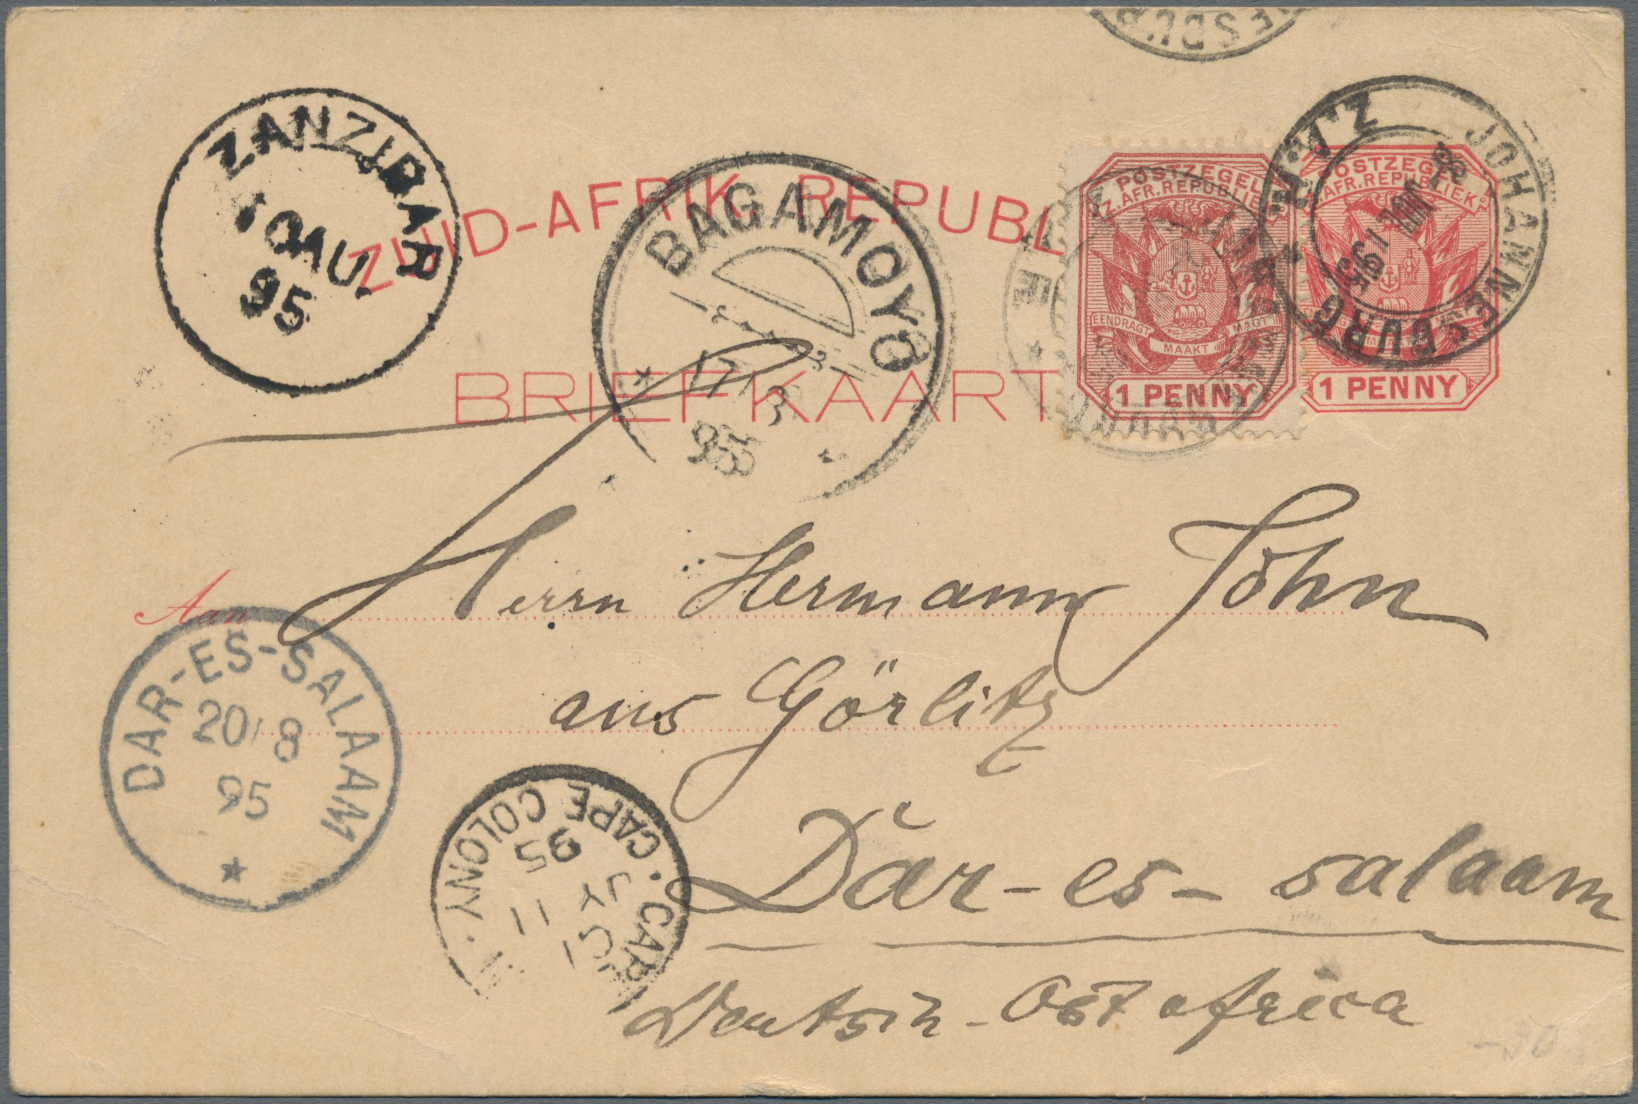 ESBUR
ZANZIBAR
10 AU.
95
ZUID-AFRIK. REPUBL
BRIEFKAART
BAGAMOYO
17 8
95
POSTZEGEL
Z. AFR. REPUBLIEK
EENDRAGT MAAKT MAGT
1 PENNY
POSTZEGEL
Z. AFR. REPUBLIEK
1 PENNY
JOHANNESBURG
Z.A.R.
95
Aan
Herrn Hermann John
aus Görlitz
Dār-es-salaam
Deutsch-Ostafrica
DAR-ES-SALAAM
20/8
95
CAPE COLONY
JY 11
95